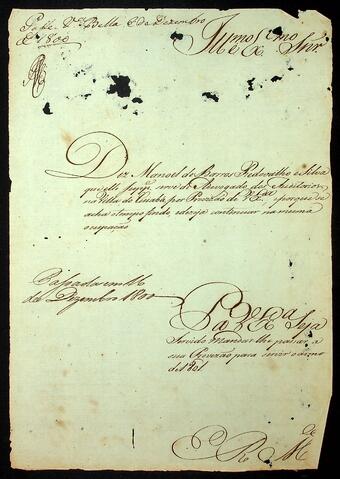 Passe Vª Bella 6 de Dezembro
de 1800
Illmo e Exmo Snr
Diz Manoel de Barros Redovalho e Silva
que elle supp.e serve de Advogado dos Auditorios
na Villa do Cuiabá, por Provizão de V Ex.ª e porque se
acha o tempo findo, e dezeja continuar na mesma
ocupação
Passada em 16
de Dezembro 1800
P. a V Ex.ª Seja
Servido mandar lhe passar a
sua Provizão para servir o anno
de 1801
E R M.ce